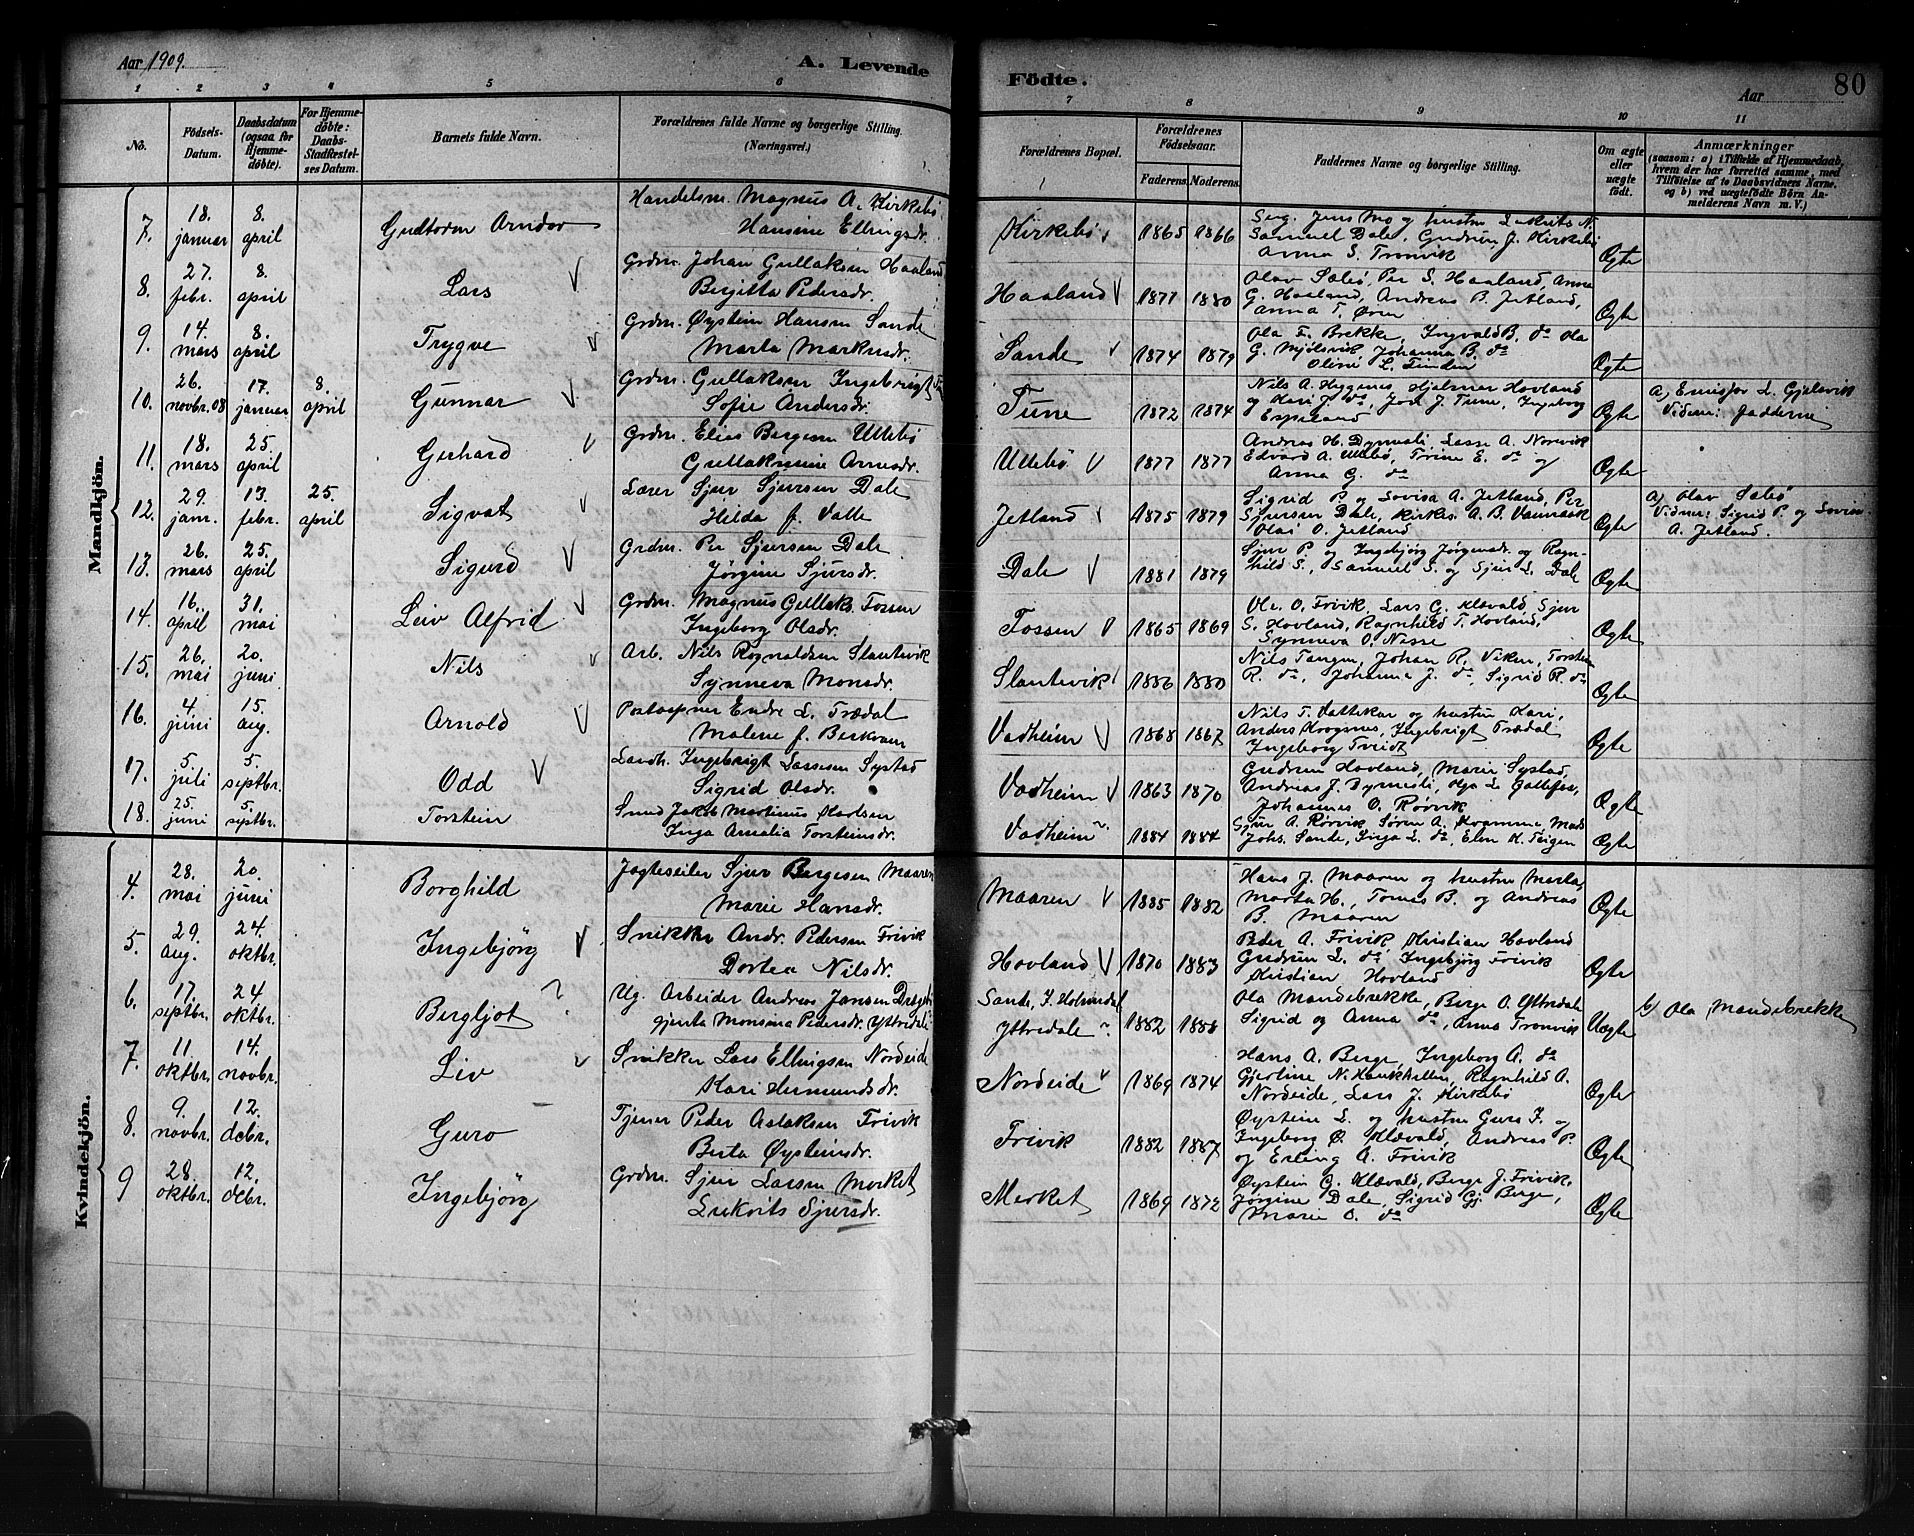 Aar 1909.
A. Levende
Födte.
Aar
80
1 2 3 4 5 6 7 8 9 10 11
No.
Födsels-Datum.
Daabsdatum (ogsaa for Hjemmedöbte).
For Hjemmedöbte: Daabs-Stadfæstelses Datum.
Barnets fulde Navn.
Forældrenes fulde Navne og borgerlige Stilling. (Næringsvei.)
Forældrenes Bopæl.
Forældrenes Födselsaar.
Faderens. Moderens.
Faddernes Navne og borgerlige Stilling.
Om ægte eller uægte födt.
Anmærkninger
(saasom: a) i Tilfælde af Hjemmedaab, hvem der har forrettet samme, med Tilföielse af to Daabsvidners Navne, og b) ved uægtefödte Börn Anmelderens Navn m. V.)
Mandkjön.
7. 18. januar 8. april Guttorm Arndor
Handelsm. Magnus A. Kirkebö
Hansine Ellingsdr.
Kirkebö 1865 1866
Jens Mo og hustru N.
Samuel Dale, Gudrun J. Kirkebö
Anna S. Tronvik
Ægte
8. 27. febr. 8. april Lars
Grdm. Johan Gullaksen Haaland
Bergitta Pedersdr.
Haaland 1877 1880
Olav Sæbö, Per S. Haaland, Anna
G. Haaland, Andreas B. Jetland,
Anna T. Øren
Ægte
9. 14. mars 8. april Trygve
Grdm. Øystein Hansen Sande
Marta Markusdr.
Sande 1874 1879
Ola F. Brekke, Ingvald B. do Ola
G. Mjölsvik, Johanna B. do
Oline L. Linden
Ægte
10. 26. novbr. 08 17. januar 8. april Gunnar
Grdm. Gullaksen Ingebrigt
Sofie Andersdr.
Tune 1872 1874
Nils A. Hygenes, Hjalmar Hovland
og Kari J. do, J. Tune, Ingeborg
Espeland
Ægte
a, Emisfor L. Gjelsvik
Vidner: Fadderne
11. 18. mars 25. april Gerhard
Grdm. Elias Bergesen Ullebö
Gullaksine Arnesdr.
Ullebö 1877 1877
Andreas H. Dymesli, Lasse A. Norevik
Edvard A. Ullebö, Trine E. do og
Anna G. do
Ægte
12. 29. janr. 13. febr. 25. april Sigvat
Lærer Sjur Sjursen Dale
Hilda f. Valle
Jetland 1875 1879
Sigrid P. og Lovisa A. Jetland, Per
Sjursen Dale, A. B.
Olai O. Jetland
Ægte
a, Olav Sæbö
Vidner: Sigrid P. og Lovisa
A. Jetland.
13. 26. mars 25. april Sigurd
Grdm. Per Sjursen Dale
Jörgine Sjursdr.
Dale 1881 1879
Sjur P. og Ingebjörg Jörgensdr. og Ragn-
hild S., Samuel S. og Sjur L. Dale
Ægte
14. 16. april 31. mai Leiv Alfrid
Grdm. Magnus Gullaks. Fossen
Ingeborg Olsdr.
Fossen 1865 1869
Ole O. Frivik, Lars G. Klævold, Sjur
S. Hovland, Ragnhild T. Hovland,
Synneva O. Nesse
Ægte
15. 26. mai 20. juni Nils
Arb. Nils Rognaldsen Slantevik
Synneva Monsdr.
Slantevik 1886 1880
Nils Tangen, Johan R. Viken, Torstein
R. do, Johanna J. do, Sigrid R. do
Ægte
16. 4. juni 15. aug. Arnold
Postaapner Endre L. Trædal
Malene f. Berkvam
Vadheim 1868 1867
Nils T. Vattekar og hustru Kari,
Anders Krogsnes, Ingebrigt Trædal
Ingeborg Tveidt
Ægte
17. 5. juli 5. septbr. Odd
Landh. Ingebrigt Lassesen Systad
Sigrid Olsdr.
Vadheim 1863 1870
Gudrun Hovland, Marie Systad,
Andreas J. Dymesli, L.
Johannes O. Rörvik
Ægte
18. 25. juni 5. septbr. Torstein
Smed Jakob Martinus Karlsen
Inga Amalia Torsteinsdr.
Vadheim 1884 1884
Sjur A. Rörvik, Sören A. Kvamme, Mads
Johs. Sande, Inga L. do, Elen K. Teigen
Ægte
Kvindekjön.
4. 28. mai 20. juni Borghild
Jagteseiler Sjur Bergesen Maaren
Marie Hansdr.
Maaren 1885 1882
Hans J. Maaren og hustru Marta,
Marta H., Tomas B. og Andreas
B. Maaren
Ægte
5 29. aug. 24. oktbr. Ingebjörg
Snikker Andr. Pedersen Frivik
Dortea Nilsdr.
Hovland 1870 1883
Peder A. Frivik, Kristian Hovland
Gudrun L. do, Ingebjörg Frivik
Kristian Hovland
Ægte
6. 17. septbr. 24. oktbr. Bergljot ?
Ug. Arbeider Andreas Jansen
gjenta Monsina Pedersdr. Yttredale
Sande, J. Holmedal
Yttredale 1882 1888
Ola Mandebrekke, Berge O. Yttredale
Sigrid og Anna do, Anna Tronvik
Uægte
b, Ola Mandebrekke
7. 11. oktbr. 14. novbr. Liv
Snikker Lars Ellingsen Nordeide
Kari Hermundsdr.
Nordeide 1869 1874
Hans A. Berge, Ingeborg A. do
Gjertine N. Haukhellen, Ragnhild A.
Nordeide, Lars J. Kirkebö
Ægte
8. 9. novbr. 12. debr. Guro
Tjener Peder Aslaksen Frivik
Berta Øysteinsdr.
Frivik 1882 1887
Øystein L. og hustru Guro J. og
Ingeborg Ø. Klævold, Andreas P.
og Erling A. Frivik
Ægte
9 28. oktbr. 12. debr. Ingebjörg
Grdm. Sjur Larsen Merket
Lukrits Sjursdr.
Merket 1869 1872
Øystein G. Klævold, Berge J. Frivik,
Jörgine Dale, Sigrid Gj. Berge,
Marie O. do
Ægte